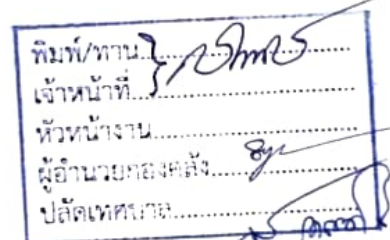 พิมพ์/ทาน
เจ้าหน้าที่
หัวหน้างาน
ผู้อำนวยกองคลัง
ปลัดเทศบาล